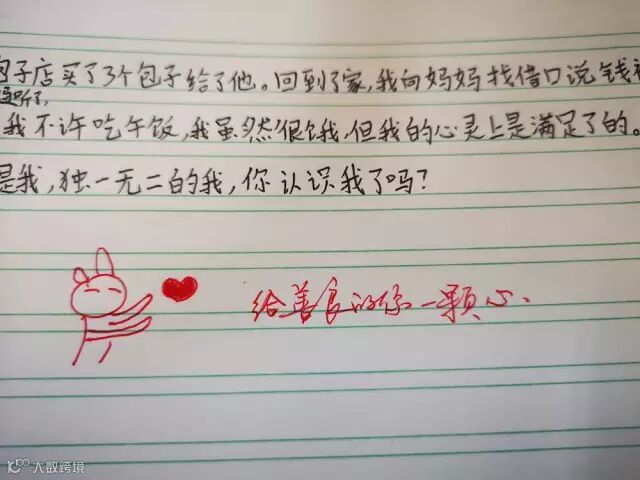 包子店买了3个包子给了他。回到了家,我向妈妈找借口说钱
听了,
我不许吃午饭,我虽然很饿,但我的心灵上是满足了的。
是我,独一无二的我,你认识我了吗?
给善良的你一颗心.
大数跨境